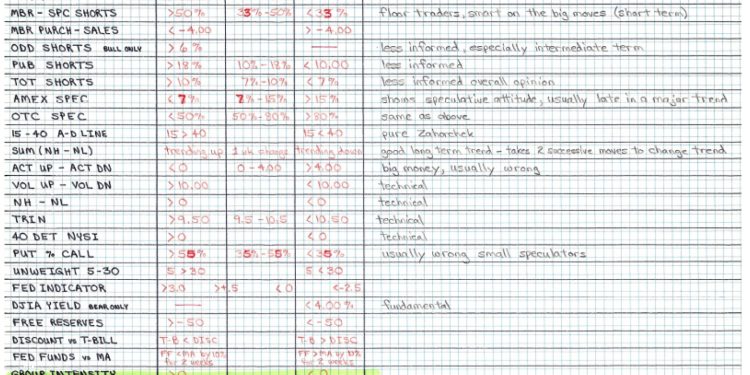 MBR - SPC SHORTS >50% 33%-50% <33% floor traders, smart on the big moves (short term)
MBR PURCH - SALES <-4.00 >-4.00
ODD SHORTS BULL ONLY >6% — less informed, especially intermediate term
PUB SHORTS >18% 10%-18% <10.00 less informed
TOT SHORTS >10% 7%-10% <7% less informed overall opinion
AMEX SPEC <7% 7%-15% >15% shows speculative attitude, usually late in a major trend
OTC SPEC <50% 50%-80% >80% same as above
15-40 A-D LINE 15>40 15<40 pure Zahorchek
SUM (NH - NL) trending up 1 wk change trending down good long term trend - takes 2 successive moves to change trend
ACT UP - ACT DN <0 0-4.00 >4.00 big money, usually wrong
VOL UP - VOL DN >10.00 <10.00 technical
NH - NL >0 <0 technical
TRIN >9.50 9.5-10.5 <10.50 technical
40 DET NYSI >0 <0 technical
PUT % CALL >55% 35%-55% <35% usually wrong small speculators
UNWEIGHT 5-30 5>30 5<30
FED INDICATOR >3.0 >+.5 <0 <-2.5
DJIA YIELD BEAR ONLY — <4.00% fundamental
FREE RESERVES >-50 <-50
DISCOUNT vs T-BILL T-B < DISC T-B > DISC
FED FUNDS vs MA FF <MA by 10% for 2 weeks FF >MA by 10% for 2 weeks
GROUP INTENSITY >0 <0